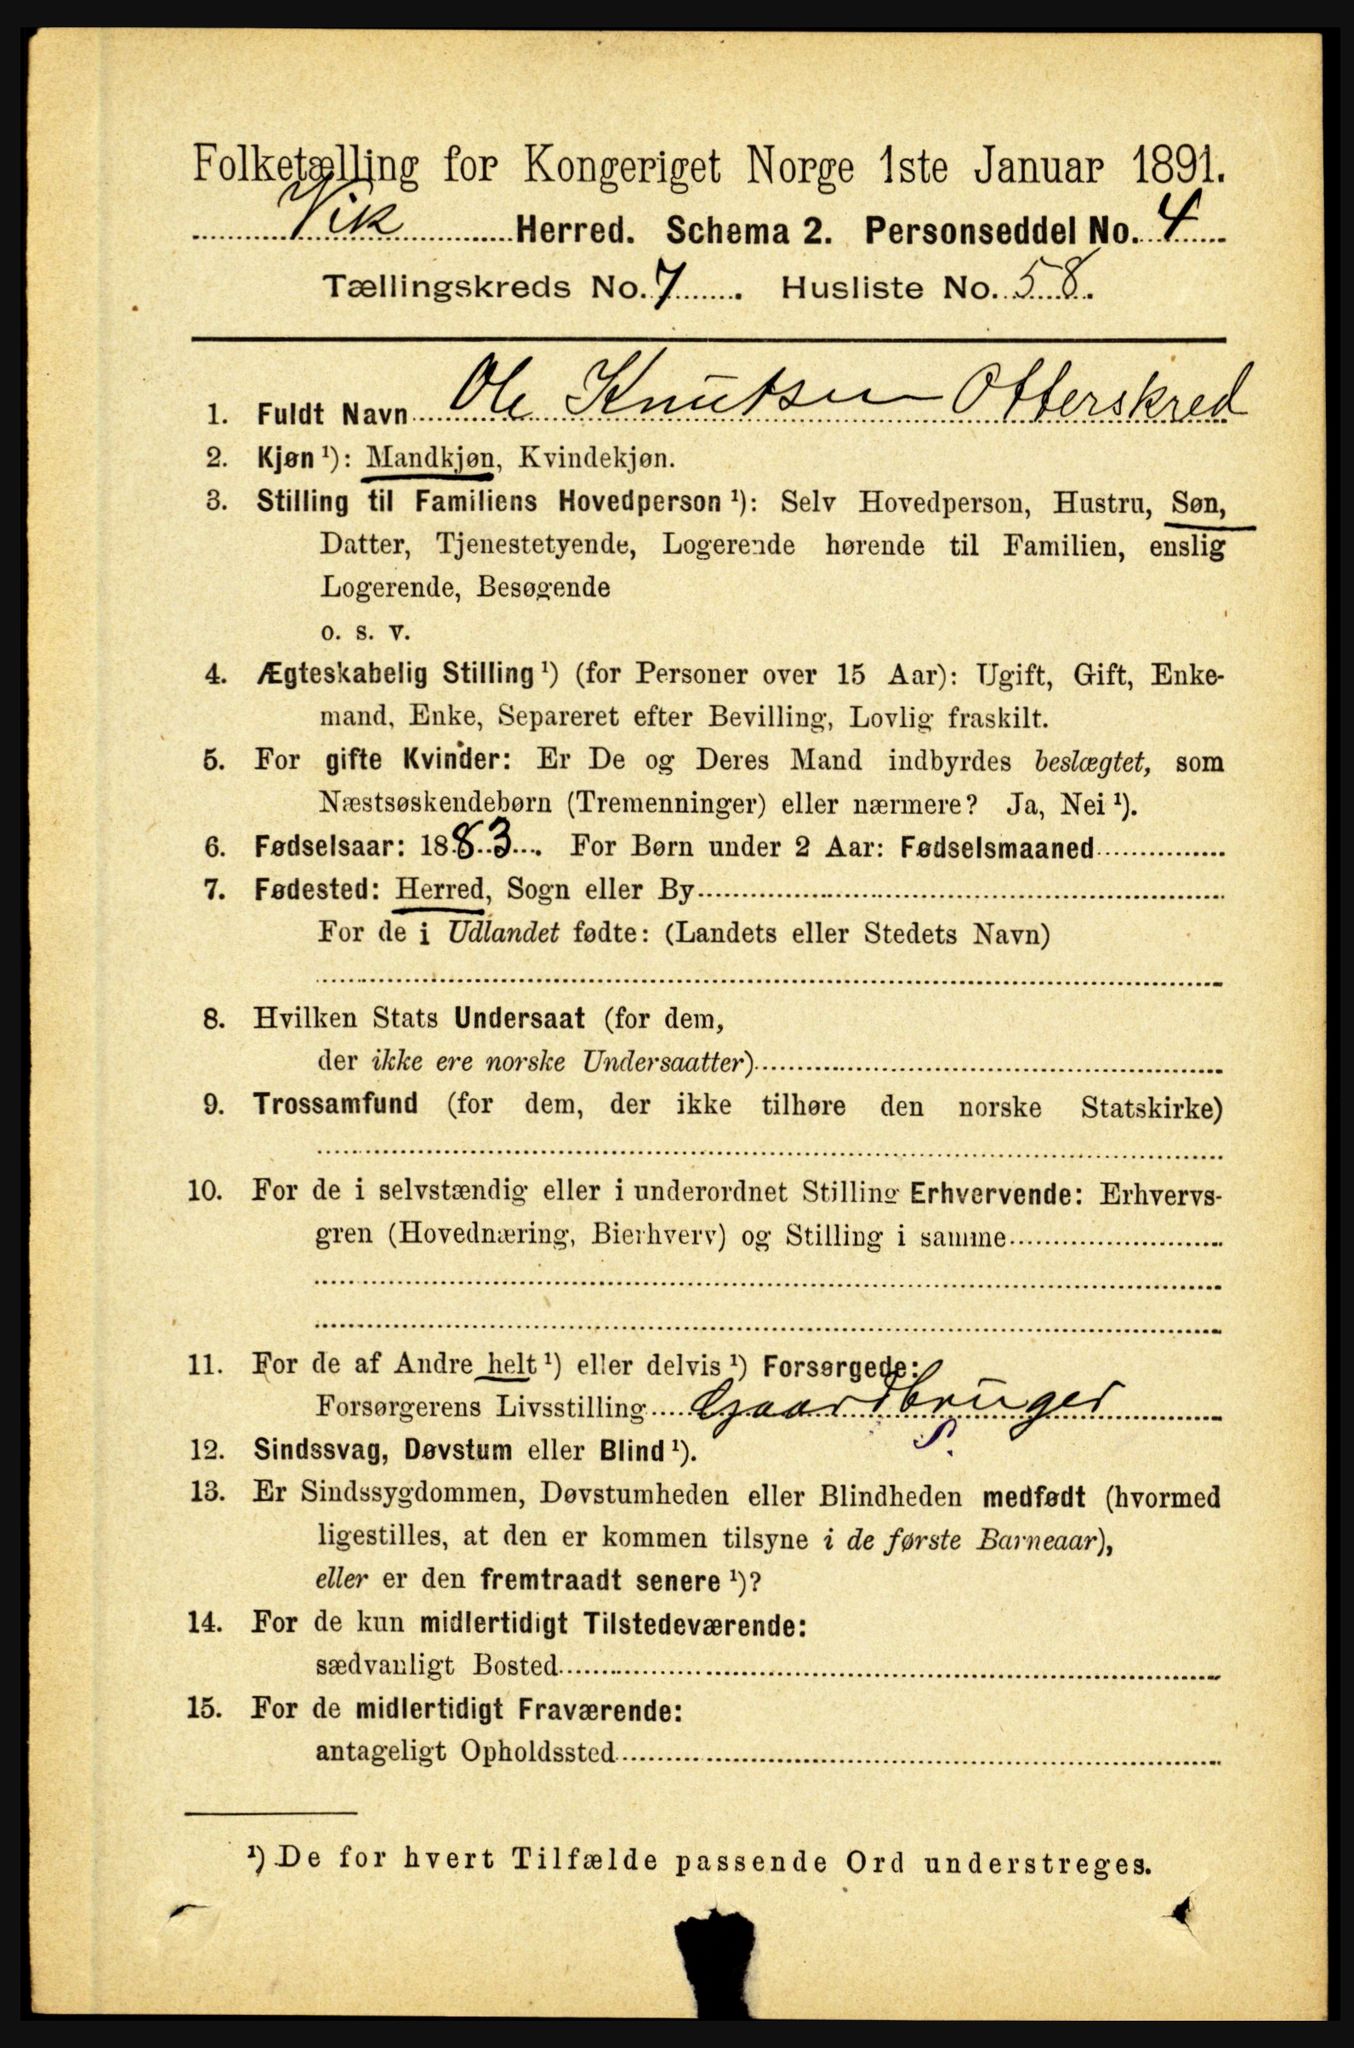 Folketælling for Kongeriget Norge 1ste Januar 1891.
Vik Herred. Schema 2. Personseddel No. 4
Tællingskreds No. 7. Husliste No. 58.
1. Fuldt Navn Ole Knutsen Otterskred
2. Kjøn ¹): Mandkjøn, Kvindekjøn.
3. Stilling til Familiens Hovedperson ¹): Selv Hovedperson, Hustru, Søn,
Datter, Tjenestetyende, Logerende hørende til Familien, enslig
Logerende, Besøgende
o. s. v.
4. Ægteskabelig Stilling ¹) (for Personer over 15 Aar): Ugift, Gift, Enke-
mand, Enke, Separeret efter Bevilling, Lovlig fraskilt.
5. For gifte Kvinder: Er De og Deres Mand indbyrdes beslægtet, som
Næstsøskendebørn (Tremenninger) eller nærmere? Ja, Nei ¹).
6. Fødselsaar: 1883. For Børn under 2 Aar: Fødselsmaaned
7. Fødested: Herred, Sogn eller By
For de i Udlandet fødte: (Landets eller Stedets Navn)
8. Hvilken Stats Undersaat (for dem,
der ikke ere norske Undersaatter)
9. Trossamfund (for dem, der ikke tilhøre den norske Statskirke)
10. For de i selvstændig eller i underordnet Stilling Erhvervende: Erhvervs-
gren (Hovednæring, Bierhverv) og Stilling i samme
11. For de af Andre helt ¹) eller delvis ¹) Forsørgede:
Forsørgerens Livsstilling Gaardbruger
S.
12. Sindssvag, Døvstum eller Blind ¹).
13. Er Sindssygdommen, Døvstumheden eller Blindheden medfødt (hvormed
ligestilles, at den er kommen tilsyne i de første Barneaar),
eller er den fremtraadt senere ¹)?
14. For de kun midlertidigt Tilstedeværende:
sædvanligt Bosted
15. For de midlertidigt Fraværende:
antageligt Opholdssted
¹) De for hvert Tilfælde passende Ord understreges.